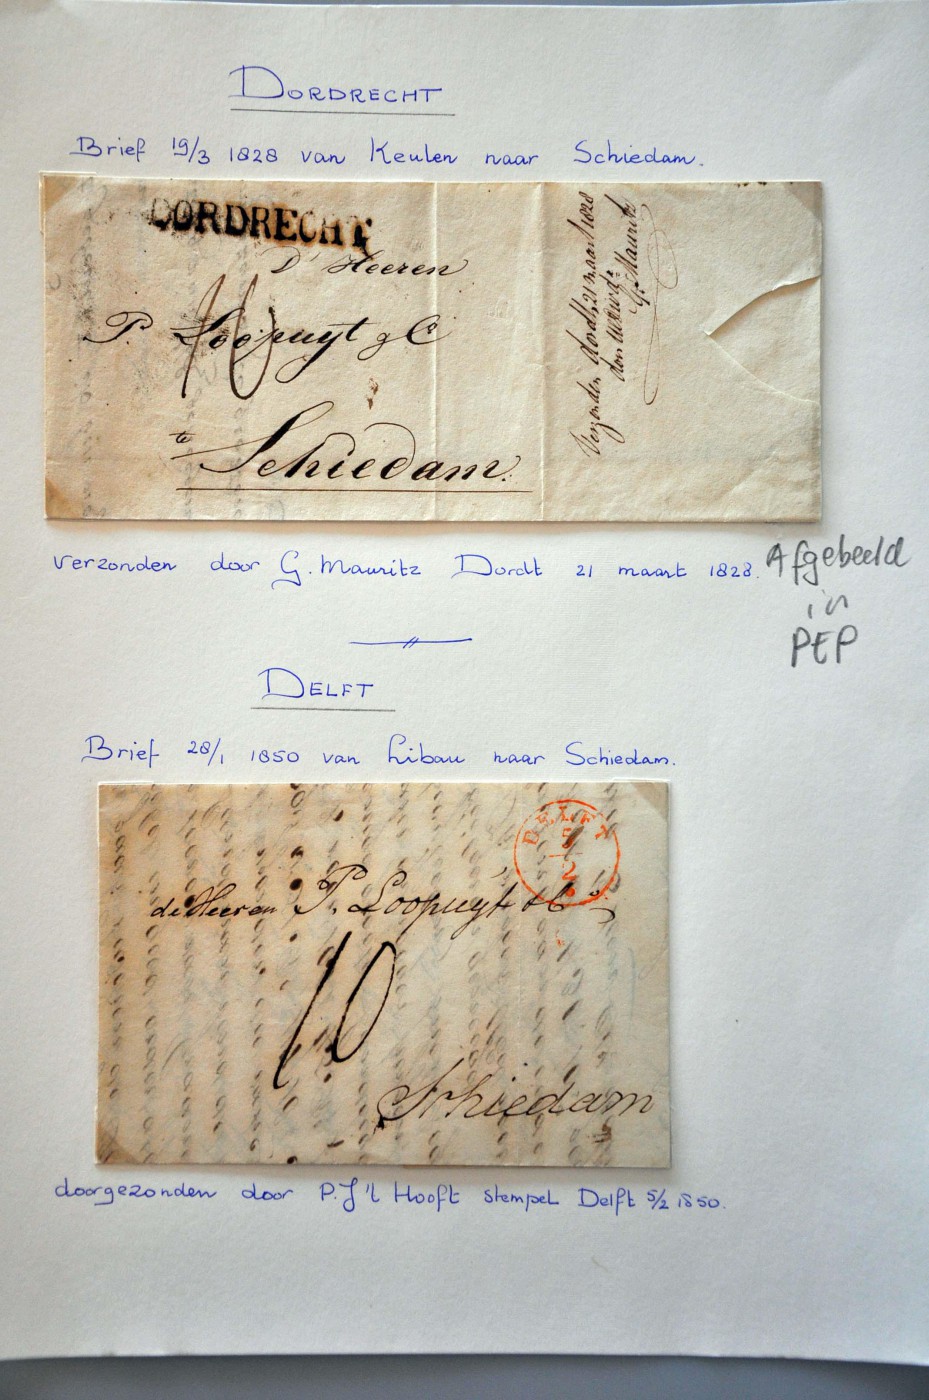 DORDRECHT
Brief 19/3 1828 van Keulen naar Schiedam.
DORDRECHT
D' Heeren
P. Loopuyt & C
te
Schiedam.
Verzonden dordt, 21 maart 1828
don
G. Mauritz
verzonden door G. Mauritz Dordt 21 maart 1828.
Afgebeeld
in
PEP
DELFT
Brief 28/1 1850 van Libau naar Schiedam.
DELFT
5
2
de Heeren P. Loopuyt & Co
10
Schiedam
doorgezonden door P.J 't Hooft stempel Delft 5/2 1850.